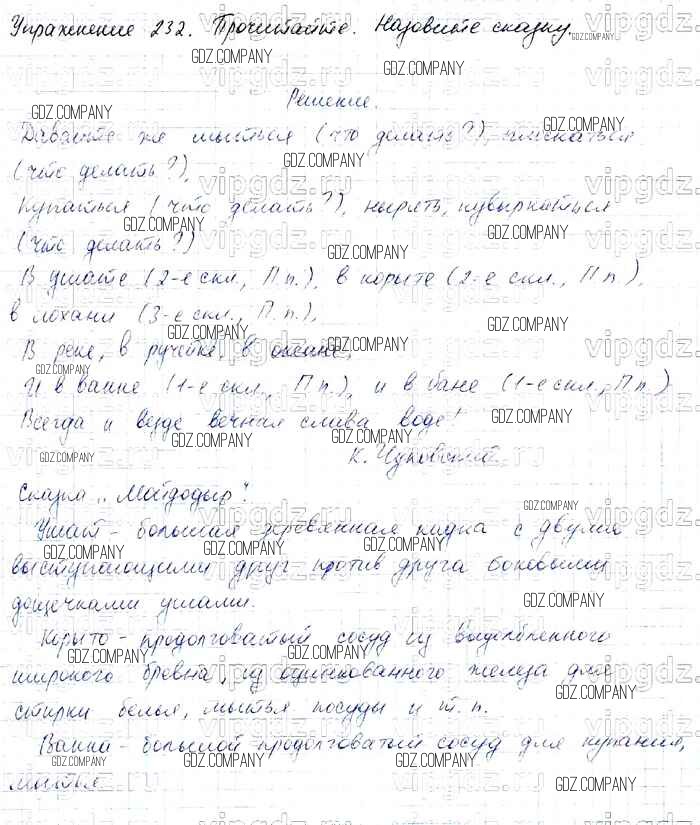 Упражнение 232. Прочитайте. Назовите сказку.
Решение.
Давайте же мыться (что делать?), плескаться
(что делать?),
Купаться (что делать?), нырять, кувыркаться
(что делать?)
В ушате (2-е скл., П п.), в корыте (2-е скл., П п),
в лохани (3-е скл., П. п.),
В реке, в ручейке, в океане,
И в ванне (1-е скл., П п.), и в бане (1-е скл., П п.)
Всегда и везде вечная слава воде!
К. Чуковский.
Сказка „Мойдодыр".
Ушат - большая деревянная кадка с двумя
выступающими друг против друга боковыми
дощечками ушами.
Корыто - продолговатый сосуд из выдолбленного
широкого бревна, из оцинкованного железа для
стирки белья, мытья посуды и т. п.
Ванна - большой продолговатый сосуд для купания,
мытья
GDZ.COMPANY
vipgdz.ru